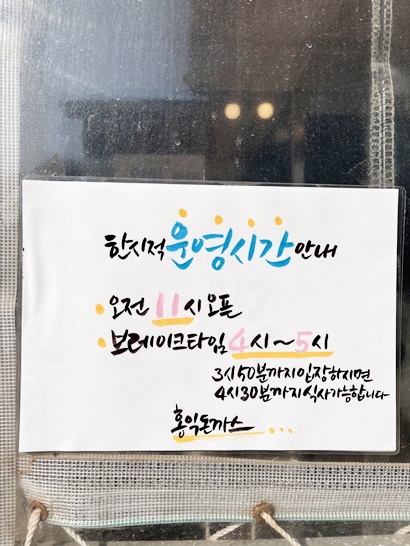 한시적 운영시간 안내
• 오전 11시 오픈
• 브레이크타임 4시~5시
3시50분까지 입장하시면
4시30분까지 식사가능합니다
홍익돈까스...